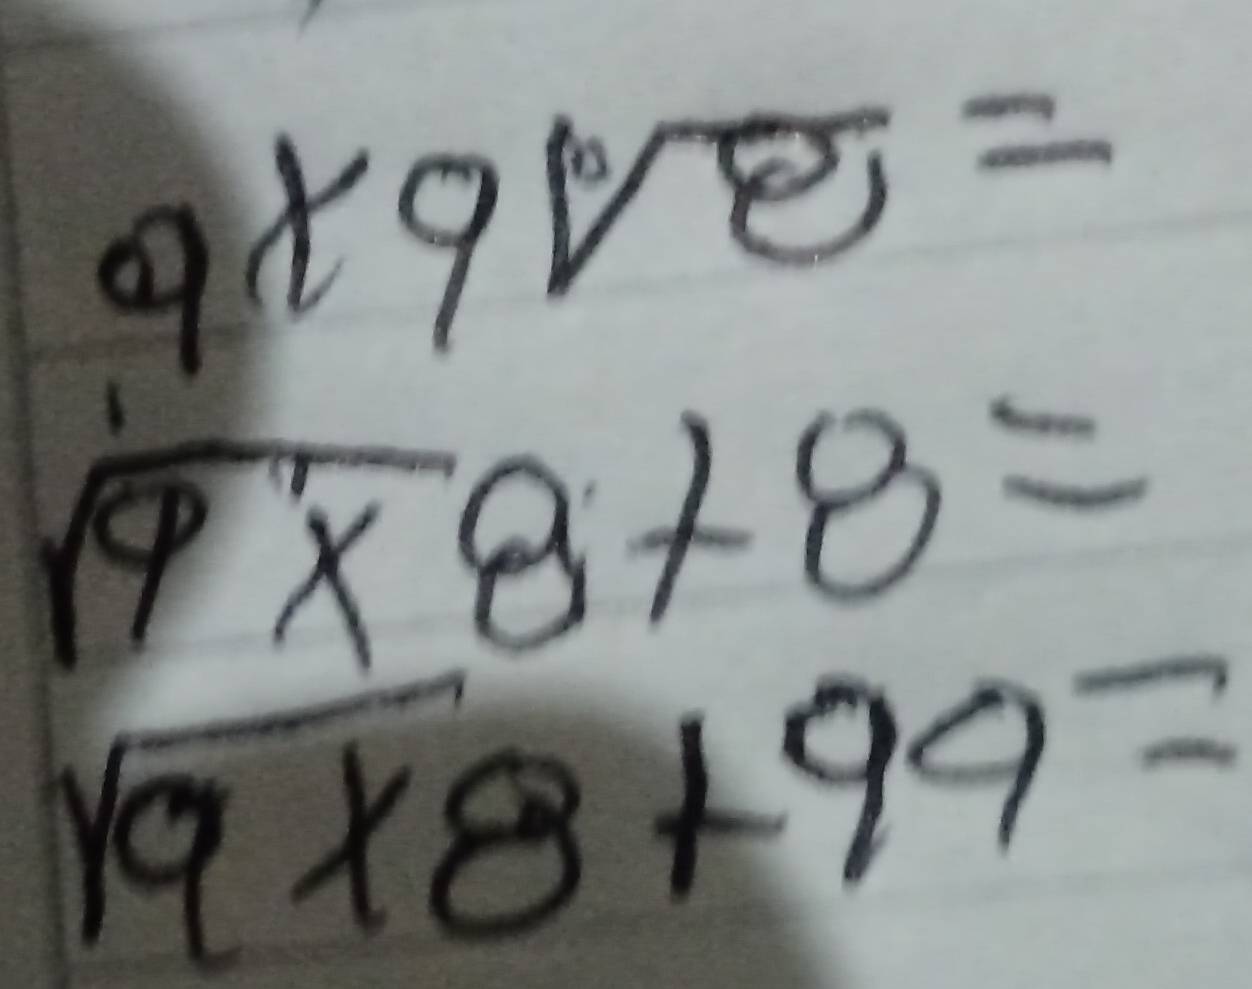 9×9∛8=
√9×8+8=
√9×8+99=